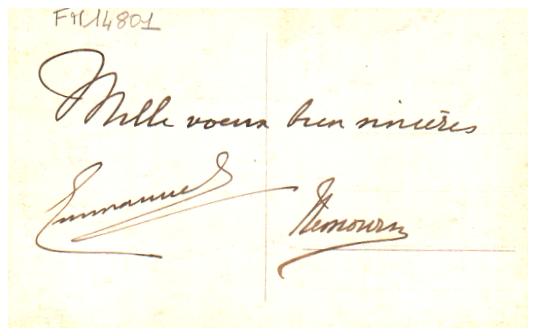 FM14801
Mille voeux bien sincères
Emmanuel Nemours